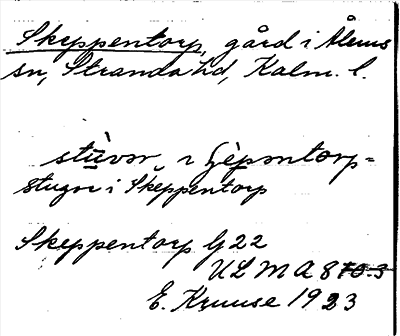 Skeppentorp, gård i Ålems
sn, Stranda hd, Kalm. l.
stùvər, r
stugor i Skeppentorp
Skeppentorp G 22
ULMA 8
E. Kruuse 1923